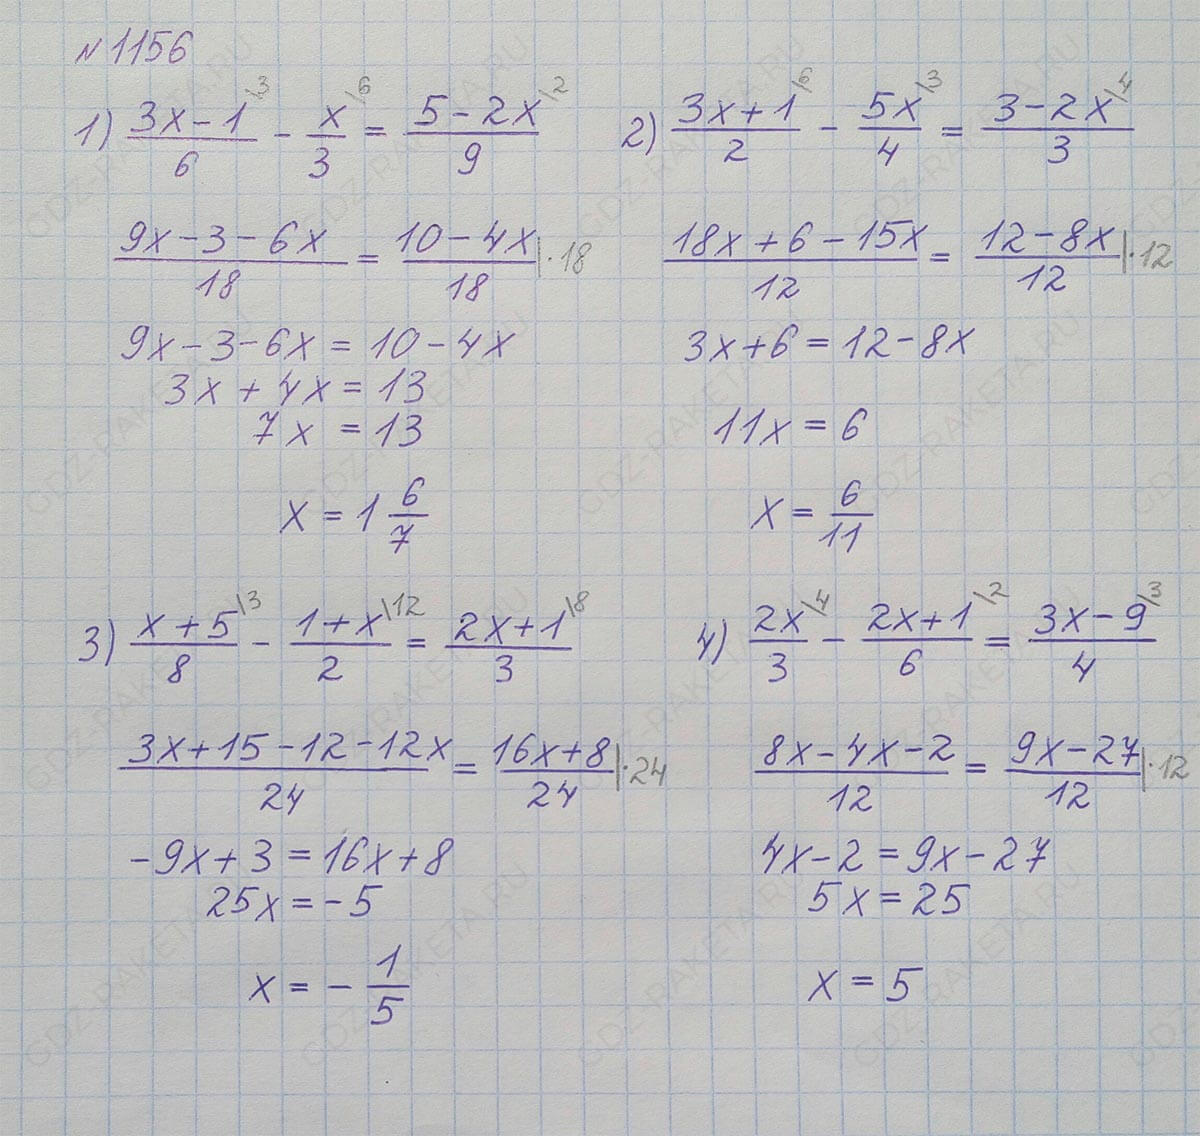 №1156
1) (3x-1)/6 \3 - x/3 \6 = (5-2x)/9 \2
9x-3-6x/18 = 10-4x/18 |·18
9x-3-6x=10-4x
3x+4x=13
7x=13
x=1 6/7
2) (3x+1)/2 \6 - 5x/4 \3 = (3-2x)/3 \4
18x+6-15x/12 = 12-8x/12 |·12
3x+6=12-8x
11x=6
x=6/11
3) (x+5)/8 \3 - (1+x)/2 \12 = (2x+1)/3 \8
3x+15-12-12x/24 = 16x+8/24 |·24
-9x+3=16x+8
25x=-5
x=-1/5
4) 2x/3 \4 - (2x+1)/6 \2 = (3x-9)/4 \3
8x-4x-2/12 = 9x-27/12 |·12
4x-2=9x-27
5x=25
x=5
GDZ-RAKETA.RU